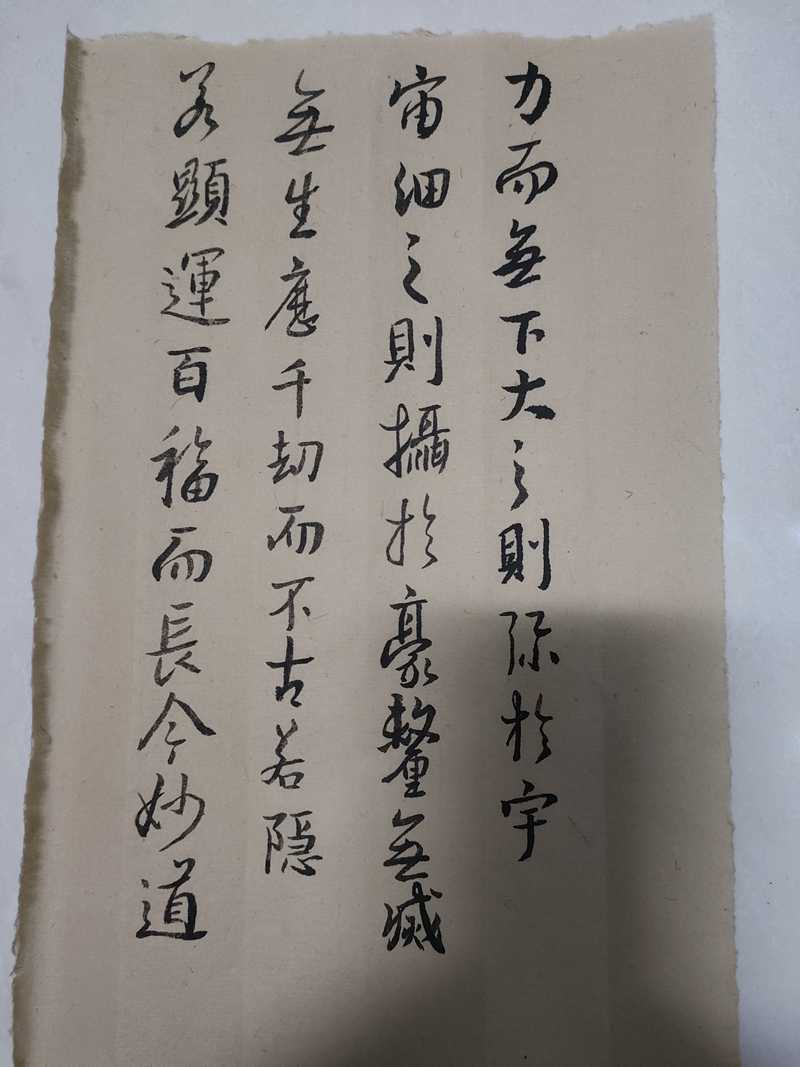 力而無下大之則弥於宇
宙細之則攝於豪釐無滅
無生歷千劫而不古若隱
若顯運百福而長今妙道